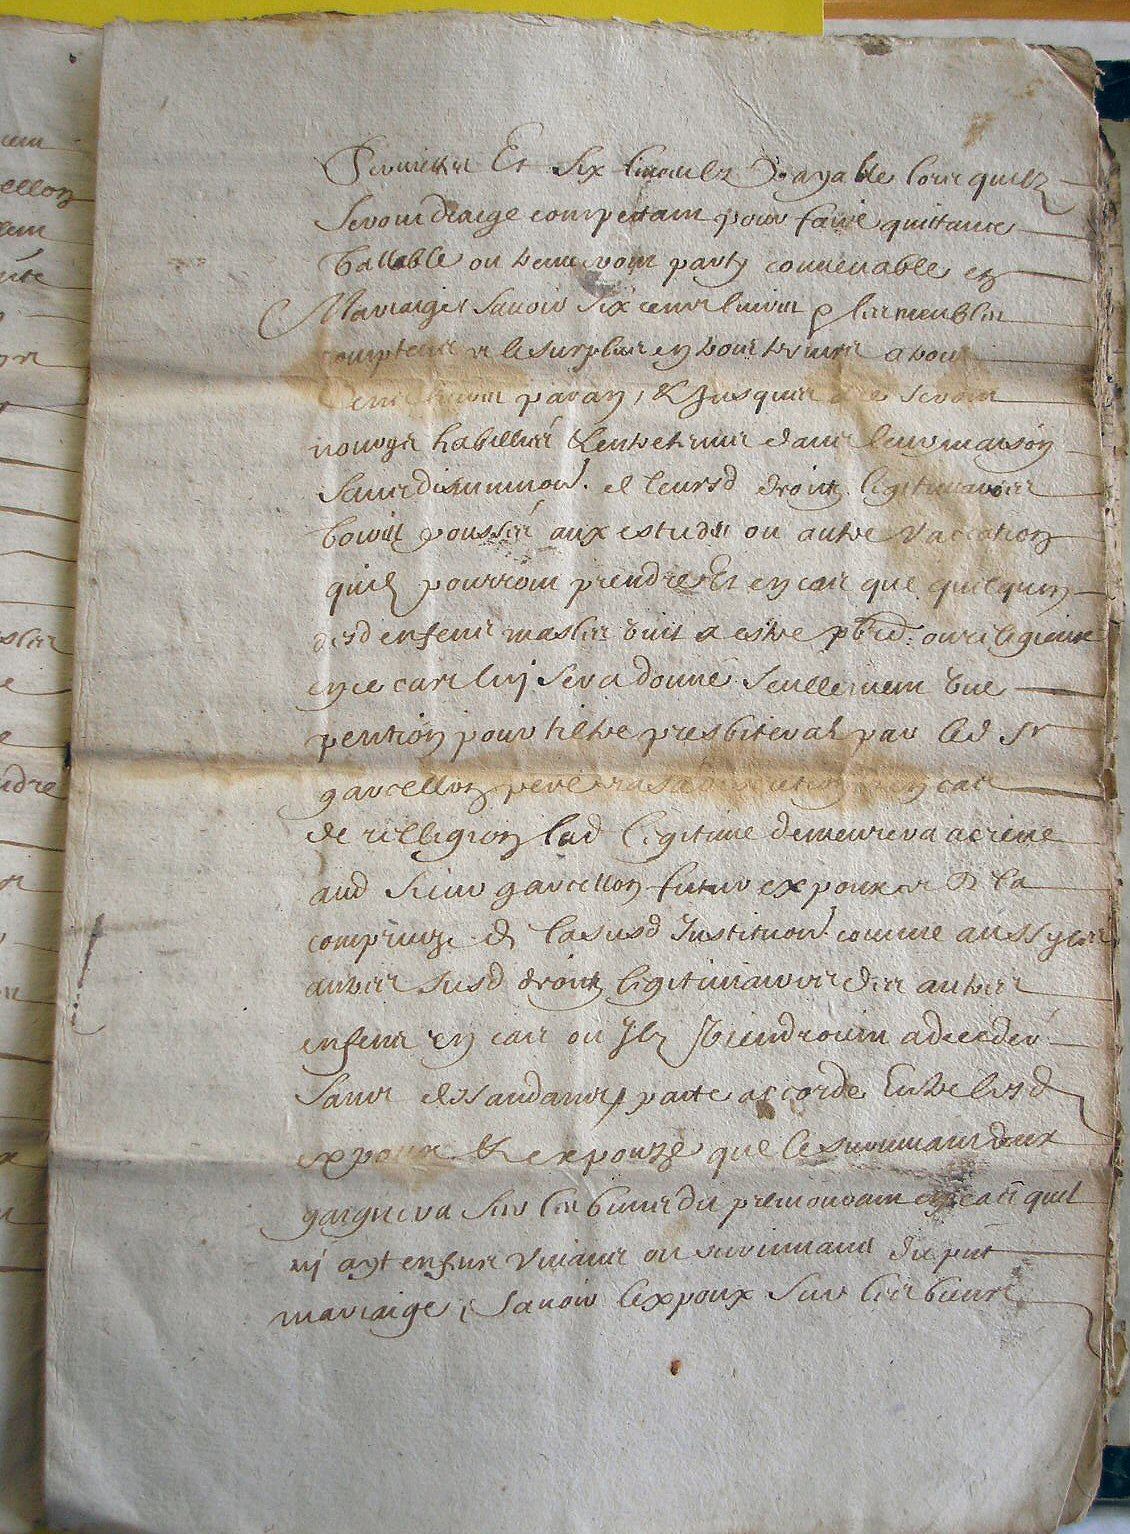 Et six linceulz payable lors quilz
seront deaige competam pour faire quittance
vallable ou treuveront party convenable en
Mariaige scavoir six cens livres p les meubles
comptens & le surplus en tour termes a tour
cens livres par an, & jusques a ce seront
nourys habilliés & entretenus dans leur maison
sans diminution de leursd droitz legitimaires
voire poussés aux estudes ou autre vacation
quilz pourront prendre Et en cas que quelquun
desd enfens masles vint a estre pbre. ou religieux
en ce cas luy sera donné seullement une
pention pour tiltre presbiteral par led sr
garcellon pere en cas
de relligion lad legitime demeurera acreue
aud sieur garcellon futur expoux & de la
comprinze de lasusd Institution comme aussy les
autres susd droitz legitimaires des autres
enfens en cas ou ilz viendroint a deceder
sans dessandans, pacte accorde entre lesd
expoux & expouze que le survivant deux
gaignera sur les biens du premourant en cas quil
ni ayt enfens vivans ou survivans du pnt
mariaige, scavoir lexpoux sur les biens